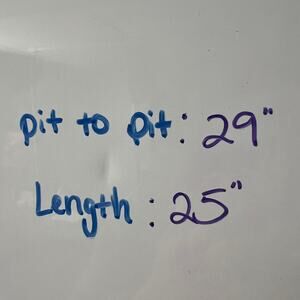 pit to pit: 29"
Length: 25"